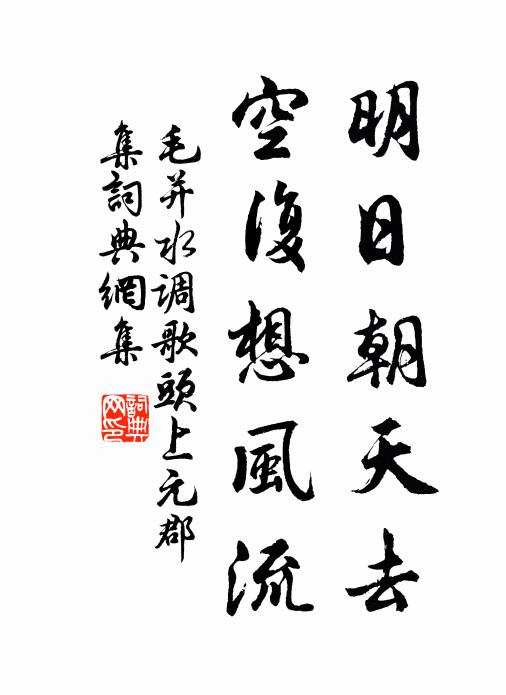 明日朝天去
空復想風流
毛并水调歌頭上元郡
集詞典網集
詞典网印